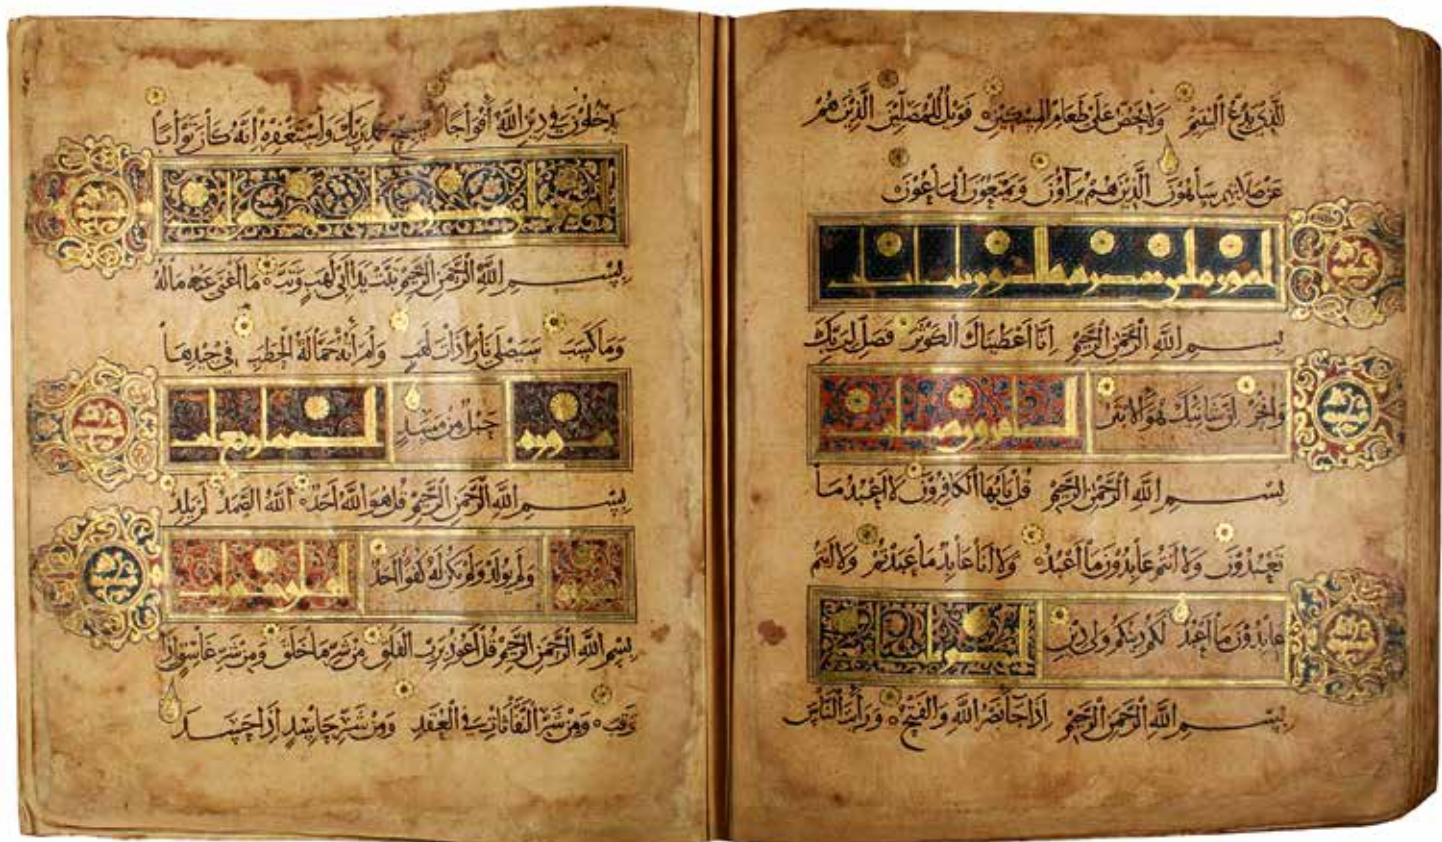 لذي يدع اليتيم ولا يحض على طعام المسكين فويل للمصلين الذين هم
عن صلاتهم ساهون الذين هم يراؤن ويمنعون الماعون
بسم الله الرحمن الرحيم انا اعطيناك الكوثر فصل لربك
وانحر ان شانئك هو الابتر
بسم الله الرحمن الرحيم قل يايها الكافرون لا اعبد ما
تعبدون ولا انتم عابدون ما اعبد ولا انا عابد ما عبدتم ولا انتم
عابدون ما اعبد لكم دينكم ولي دين
بسم الله الرحمن الرحيم اذا جآء نصر الله والفتح ورايت الناس
يدخلون في دين الله افواجا فسبح بحمد ربك واستغفره انه كان توابا
بسم الله الرحمن الرحيم تبت يدا ابي لهب وتب ما اغنى عنه ماله
وما كسب سيصلى نارا ذات لهب وامراته حمالة الحطب في جيدها
سورة حبل من مسد
بسم الله الرحمن الرحيم قل هو الله احد الله الصمد لم يلد
ولم يولد ولم يكن له كفوا احد
بسم الله الرحمن الرحيم قل اعوذ برب الفلق من شر ما خلق ومن شر غاسق اذا
وقب ومن شر النفاثات في العقد ومن شر حاسد اذا حسد